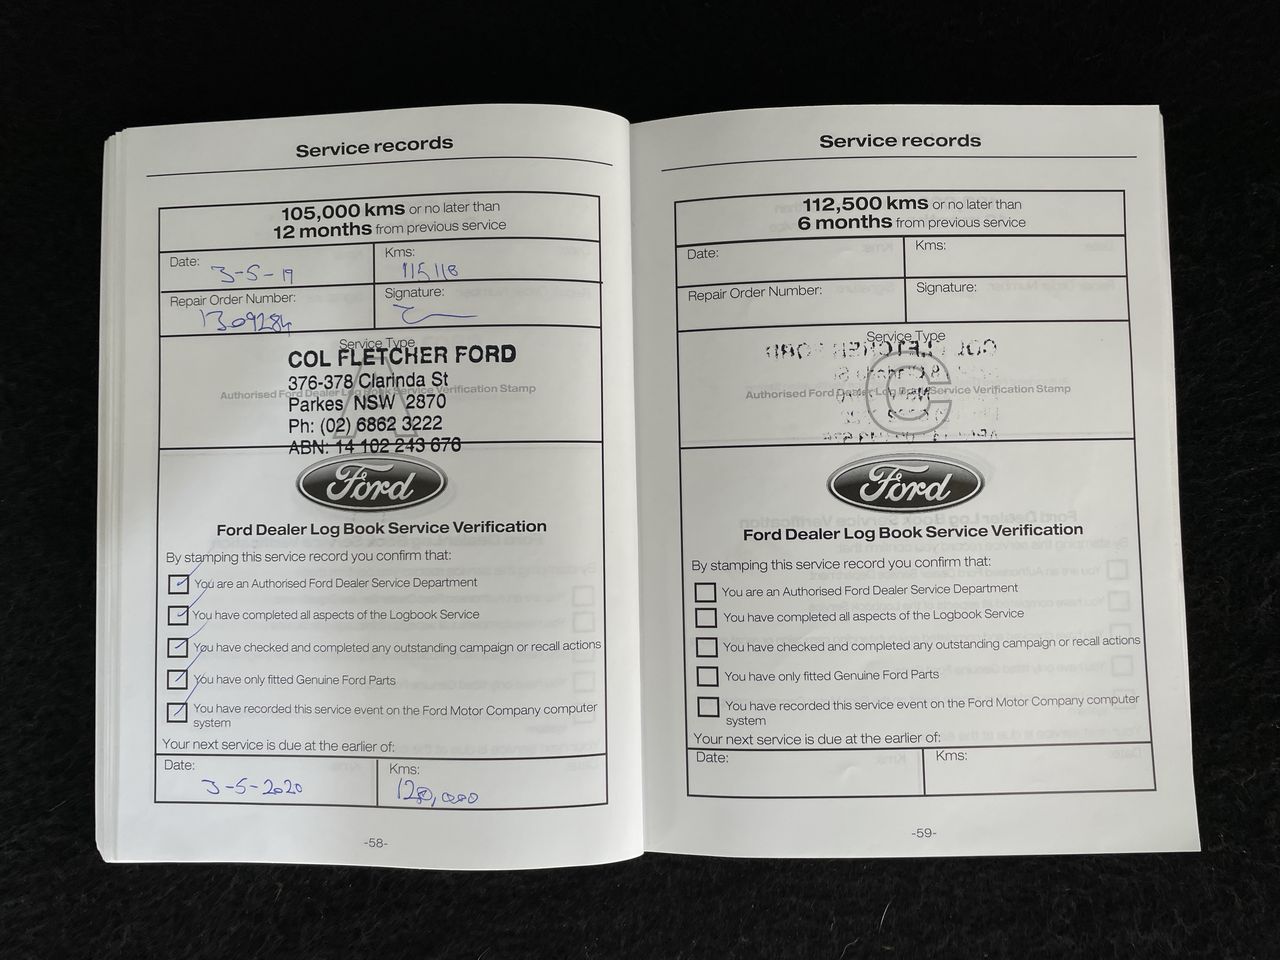 Service records
105,000 kms or no later than
12 months from previous service
Date: 3-5-19
Kms: 115118
Repair Order Number: 1309284
Signature:
Service Type
A
COL FLETCHER FORD
376-378 Clarinda St
Authorised Ford Dealer Log Book Service Verification Stamp
Parkes NSW 2870
Ph: (02) 6862 3222
ABN: 14 102 243 676
Ford
Ford Dealer Log Book Service Verification
By stamping this service record you confirm that:
You are an Authorised Ford Dealer Service Department
You have completed all aspects of the Logbook Service
You have checked and completed any outstanding campaign or recall actions
You have only fitted Genuine Ford Parts
You have recorded this service event on the Ford Motor Company computer
system
Your next service is due at the earlier of:
Date: 3-5-2020
Kms: 120,000
-58-
Service records
112,500 kms or no later than
6 months from previous service
Date:
Kms:
Repair Order Number:
Signature:
Service Type
C
Authorised Ford Dealer Log Book Service Verification Stamp
Ford
Ford Dealer Log Book Service Verification
By stamping this service record you confirm that:
You are an Authorised Ford Dealer Service Department
You have completed all aspects of the Logbook Service
You have checked and completed any outstanding campaign or recall actions
You have only fitted Genuine Ford Parts
You have recorded this service event on the Ford Motor Company computer
system
Your next service is due at the earlier of:
Date:
Kms:
-59-